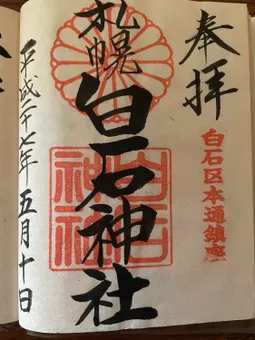 奉拝
白石区本通鎮座
札幌
白石神社
白石
神社
平成二十七年 五月十日